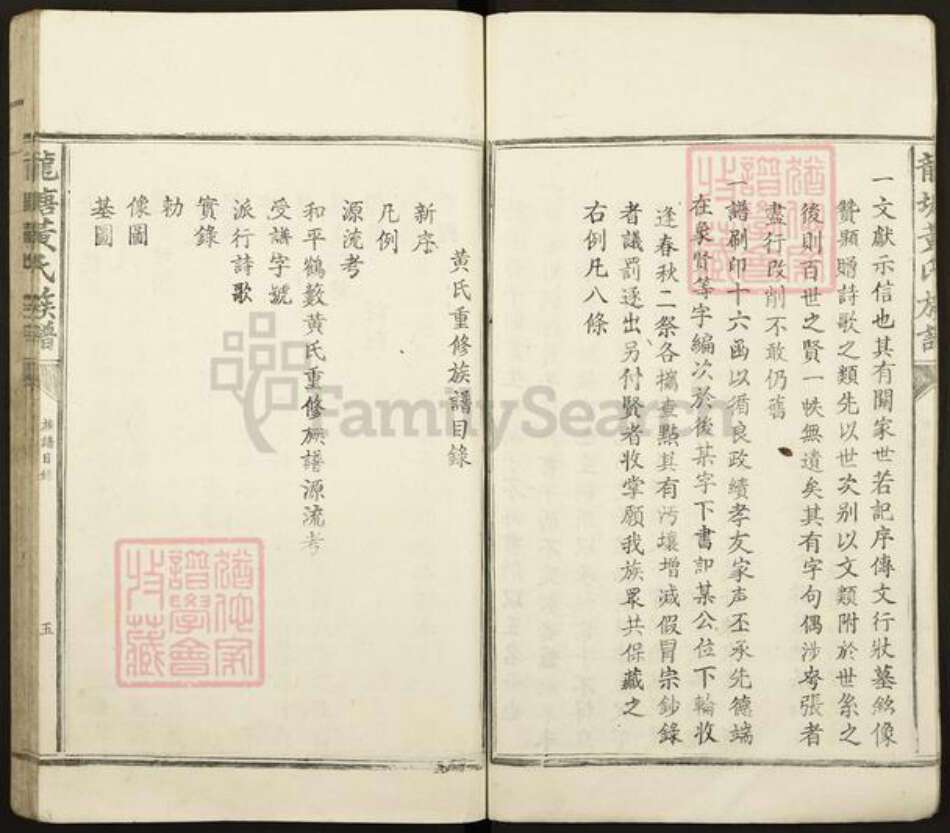 一文獻示信也其有關家世若記序傳文行狀墓銘像
贊顯贈詩歌之類先以世次别以文類附於世系之
後則百世之賢一帙無遺矣其有字句偶涉夸張者
盡行改削不敢仍舊
一譜刷印十六函以循良政績孝友家声丕承先德端
在象賢等字編次於後某字下書卽某公位下輪收
逢春秋二祭各攜查點其有污壞增減假冒宗鈔錄
者議罰逐出另付賢者收掌願我族眾共保藏之
右例凡八條
黃氏重修族譜目錄
新序
凡例
源流考
和平鶴藪黃氏重修族譜源流考
受譜字號
派行詩歌
實錄
勅
像圖
基圖
龍塘黃氏族譜
族譜目錄
五
譜學會
收藏
FamilySearch